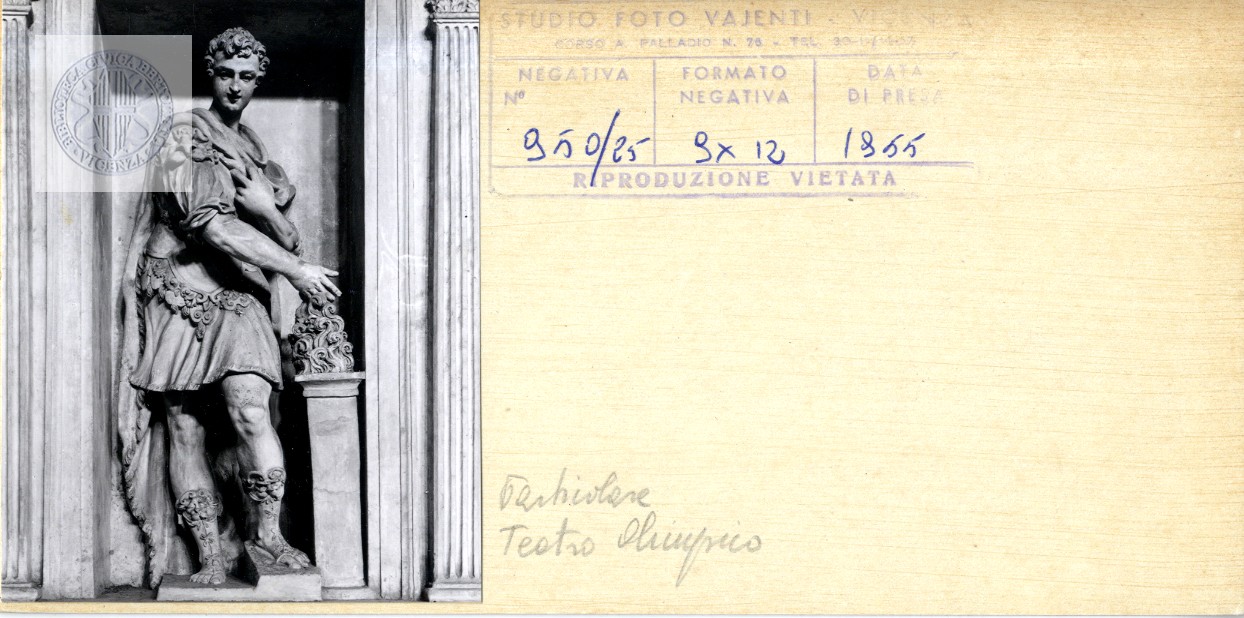 STUDIO FOTO VAJENTI - VICENZA
CORSO A. PALLADIO N. 26 - TEL.
NEGATIVA
Nº
950/25
FORMATO
NEGATIVA
9x12
DATA
DI PRESA
1955
RIPRODUZIONE VIETATA
Particolare
Teatro Olimpico
BIBLIOTECA CIVICA BERTOLIANA
VICENZA